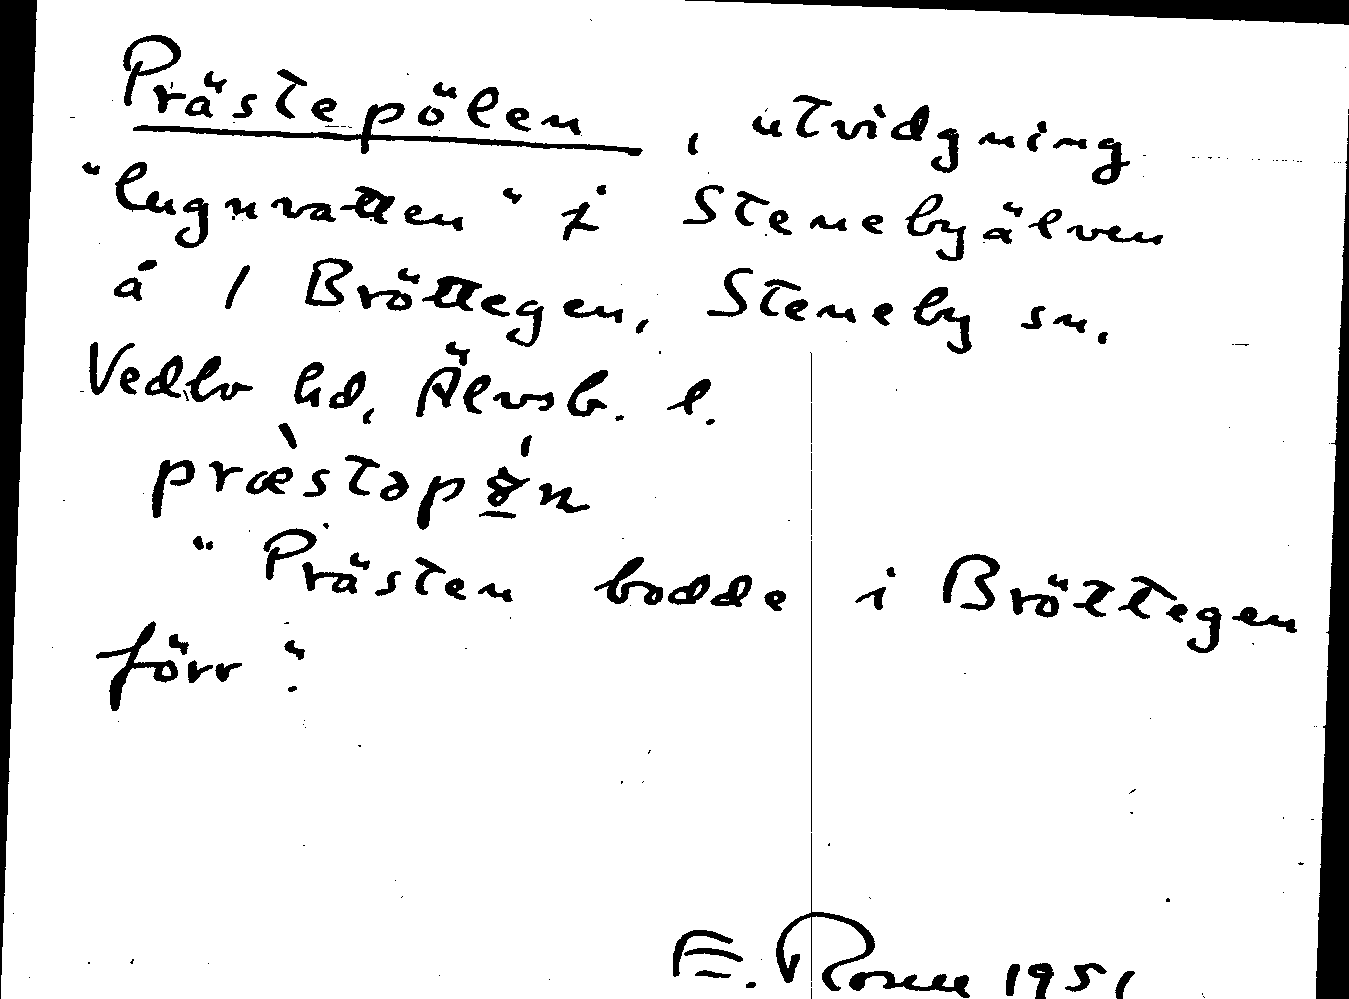 Prästepölen, utvidgning
"lugnvatten" i Stenebyälven
å 1 Bröttegen, Steneby sn,
Vedbo hd, Älvsb. l.
"Prästen bodde i Bröttegen
förr".
E. 1951